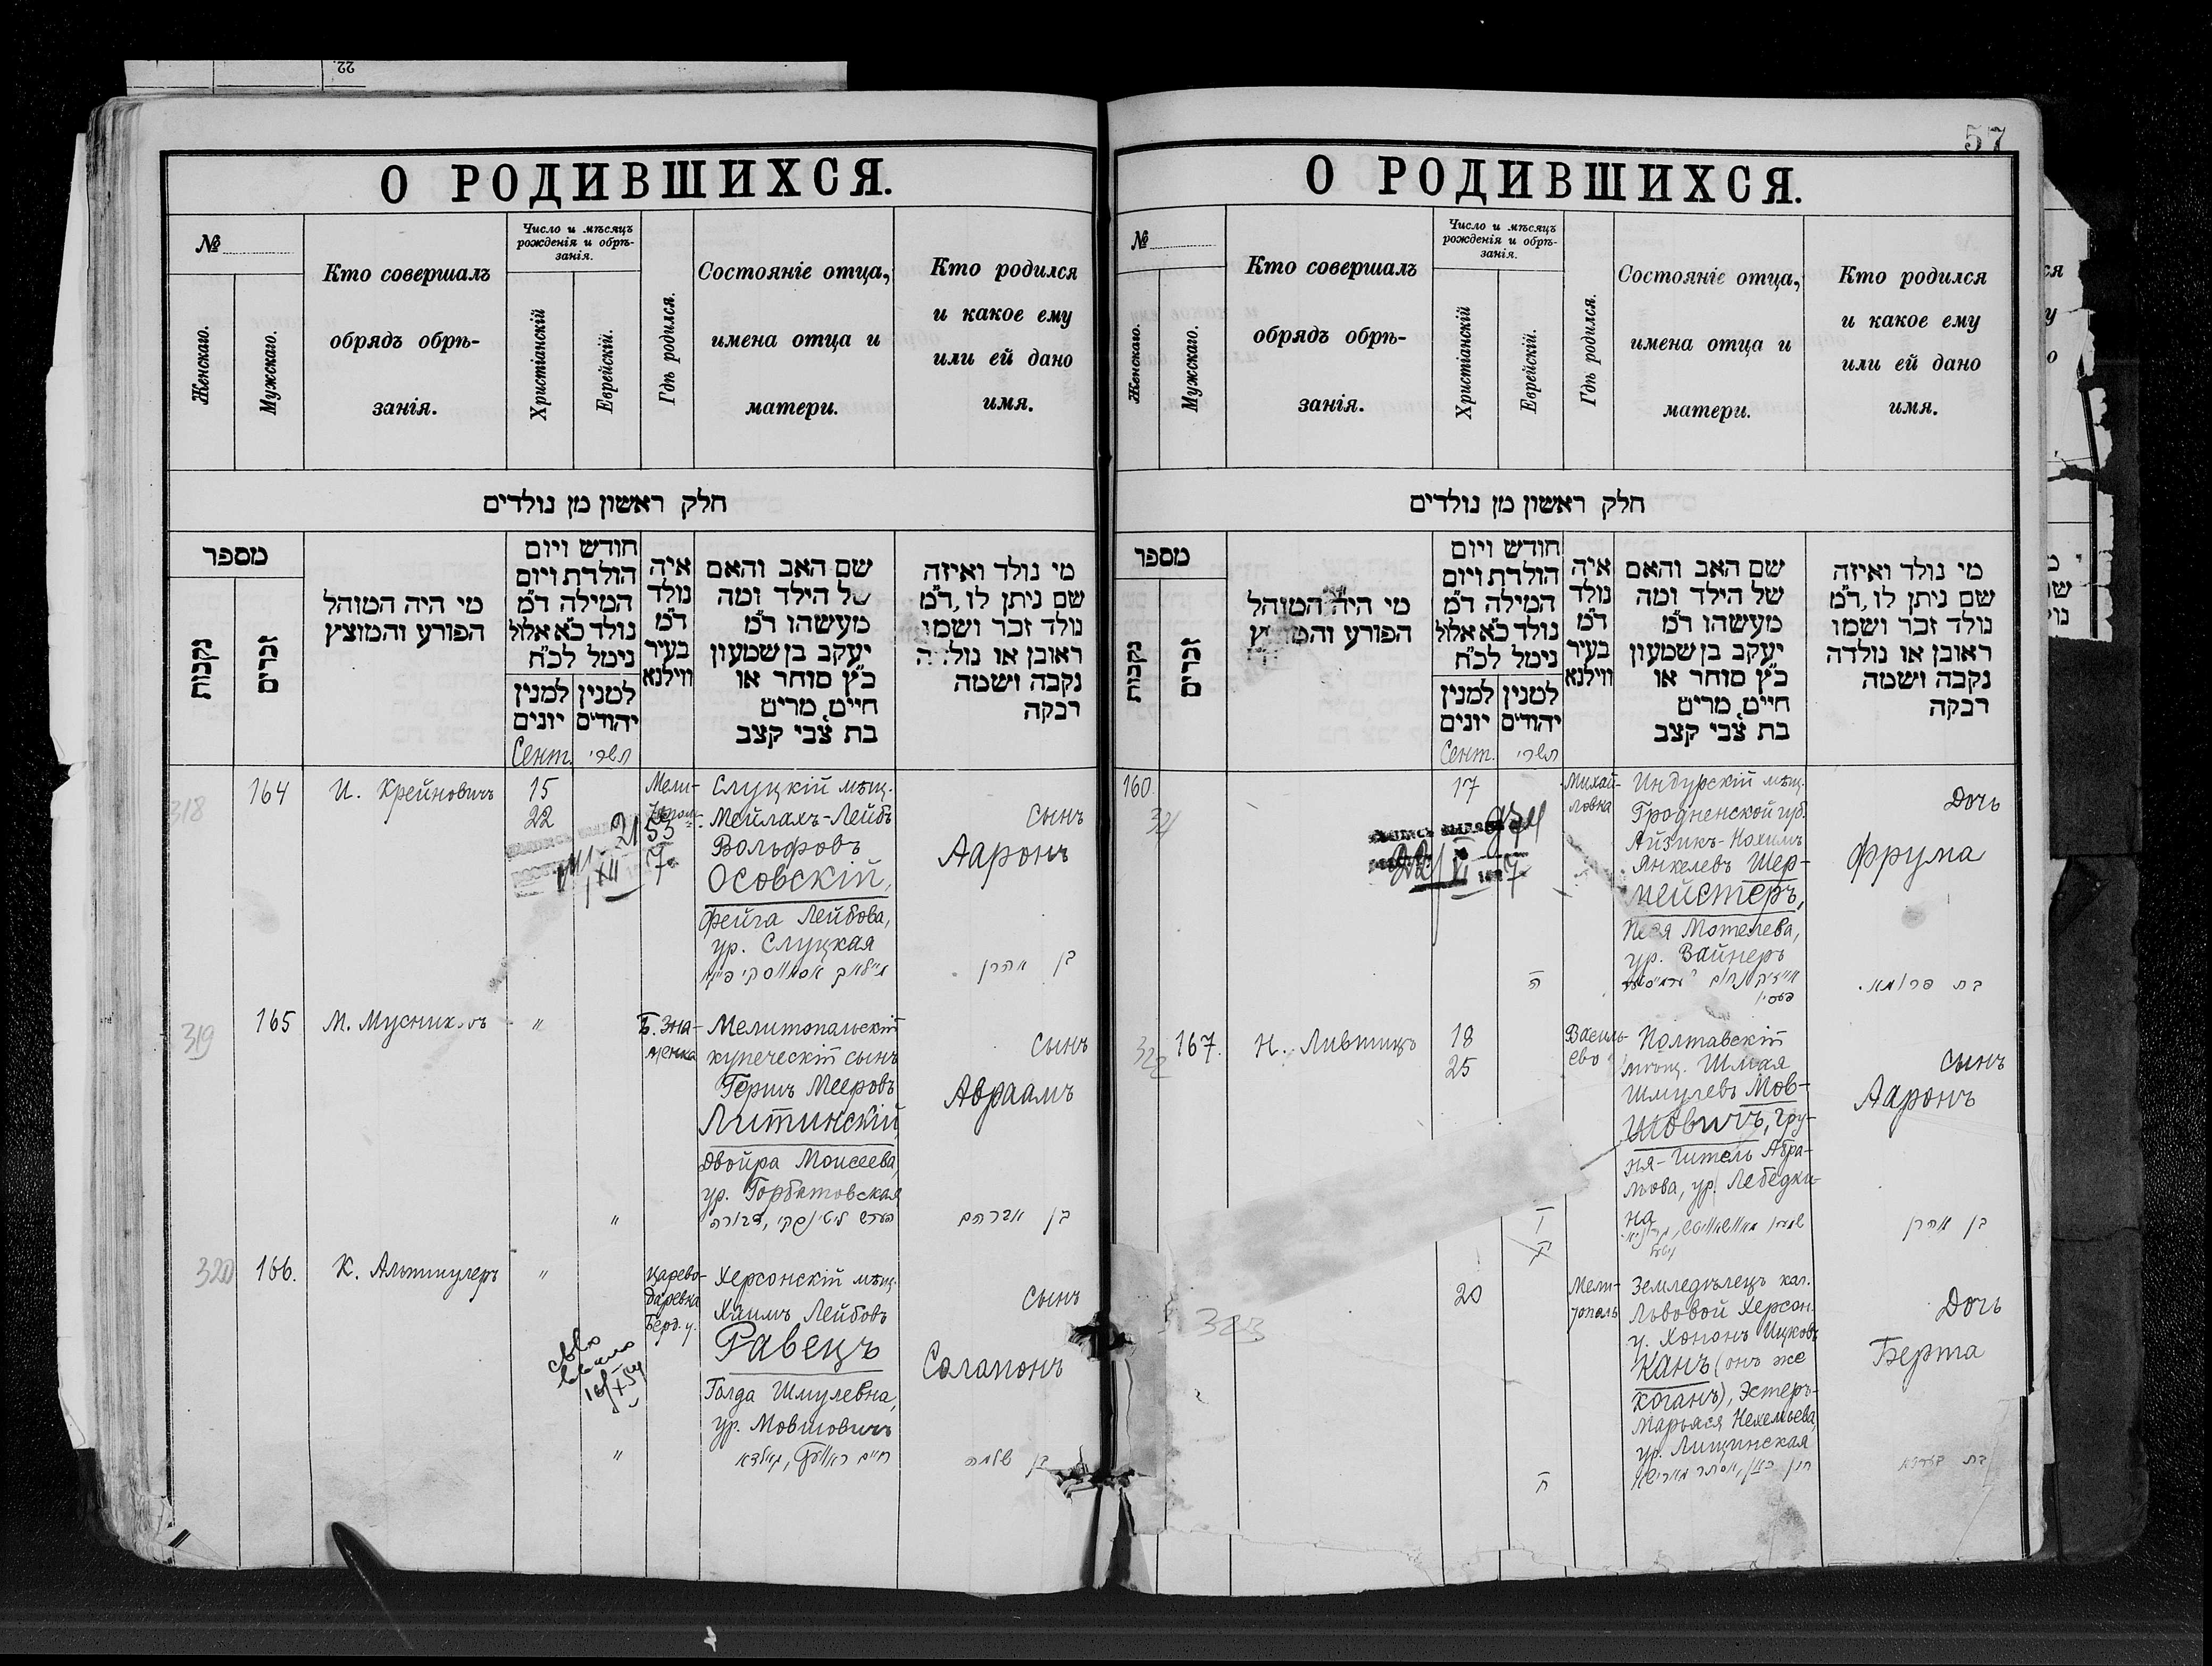 22.
57
О РОДИВШИХСЯ.
№
Женскаго.
Мужскаго.
Кто совершалъ
обрядъ обрѣ-
занія.
Число и мѣсяцъ
рожденія и обрѣ-
занія.
Христіанскій
Еврейскій.
Гдѣ родился.
Состояніе отца,
имена отца и
матери.
Кто родился
и какое ему
или ей дано
имя.
חלק ראשון מן נולדים
מספר
נקבות
זכרים
מי היה המוהל
הפורע והמוצץ
חודש ויום
הולדת ויום
המילה ד״מ
נולד כ״א אלול
נימל לכ״ח
למנין
יונים
למנין
יהודים
איה
נולד
ד״מ
בעיר
ווילנא
שם האב והאם
של הילד ומה
מעשהו ד״מ
יעקב בן שמעון
כ״ץ סוחר או
חייט, מרים
בת צבי קצב
מי נולד ואיזה
שם ניתן לו, ד״מ
נולד זכר ושמו
ראובן או נולדה
נקבה ושמה
רבקה
Сент.
תשרי
318
164
И. Крейновичъ
15
22
2155
Мели-
Слуцкій мѣщ.
Мейлахъ-Лейбъ
Вольфовъ
Осовскій,
Фейга Лейбова,
ур. Слуцкая
Сынъ
Ааронъ
בן אהרן
319
165
М.
"
Б. Зна-
менка
Мелитопальскій
купеческій сынъ
Гершъ Мееровъ
Литинскій,
Двойра Моисеева,
ур. Горбатовская
"
Сынъ
Авраамъ
בן אברהם
320
166.
К. Альтшулеръ
"
Царево-
даревка
Берд. у.
Херсонскій мѣщ.
Хаимъ Лейбовъ
Равецъ
Голда Шмулевна,
ур. Мовшовичъ
"
Сынъ
Саламонъ
בן שלמה
О РОДИВШИХСЯ.
№
Женскаго.
Мужскаго.
Кто совершалъ
обрядъ обрѣ-
занія.
Число и мѣсяцъ
рожденія и обрѣ-
занія.
Христіанскій
Еврейскій.
Гдѣ родился.
Состояніе отца,
имена отца и
матери.
Кто родился
и какое ему
или ей дано
имя.
חלק ראשון מן נולדים
מספר
נקבות
זכרים
מי היה המוהל
הפורע
חודש ויום
הולדת ויום
המילה ד״מ
נולד כ״א אלול
נימל לכ״ח
למנין
יונים
למנין
יהודים
איה
נולד
ד״מ
בעיר
ווילנא
שם האב והאם
של הילד ומה
מעשהו ד״מ
יעקב בן שמעון
כ״ץ סוחר או
חייט, מרים
בת צבי קצב
מי נולד ואיזה
שם ניתן לו, ד״מ
נולד זכר ושמו
ראובן או נולדה
נקבה ושמה
רבקה
Сент.
תשרי
160.
321
17
Михай-
ловка
Индурскій мѣщ.
Гродненской губ.
Айзикъ-Нохимъ
Янкелевъ Шер-
мейстеръ,
Песя Мотелева,
ур. Вайнеръ
ה
Дочь
Фрума
בת פרומא.
322
167.
Н. Лившицъ
18
25
Василь-
ево
Полтавскій
мѣщ. Шмая
Шмулевъ Мов-
шовичъ, Гру-
ня-Гитель Абра-
мова, ур. Лебедки-
на
ו
Сынъ
Ааронъ
בן אהרן
323
20
Мели-
тополь
Земледѣлецъ кол.
Львовой Херсон.
у. Хононъ Ицковъ
Канъ (онъ же
Коганъ), Эстеръ-
Марьяся Нехемьева,
ур. Лищинская
ח
Дочь
Берта
בת בערטא